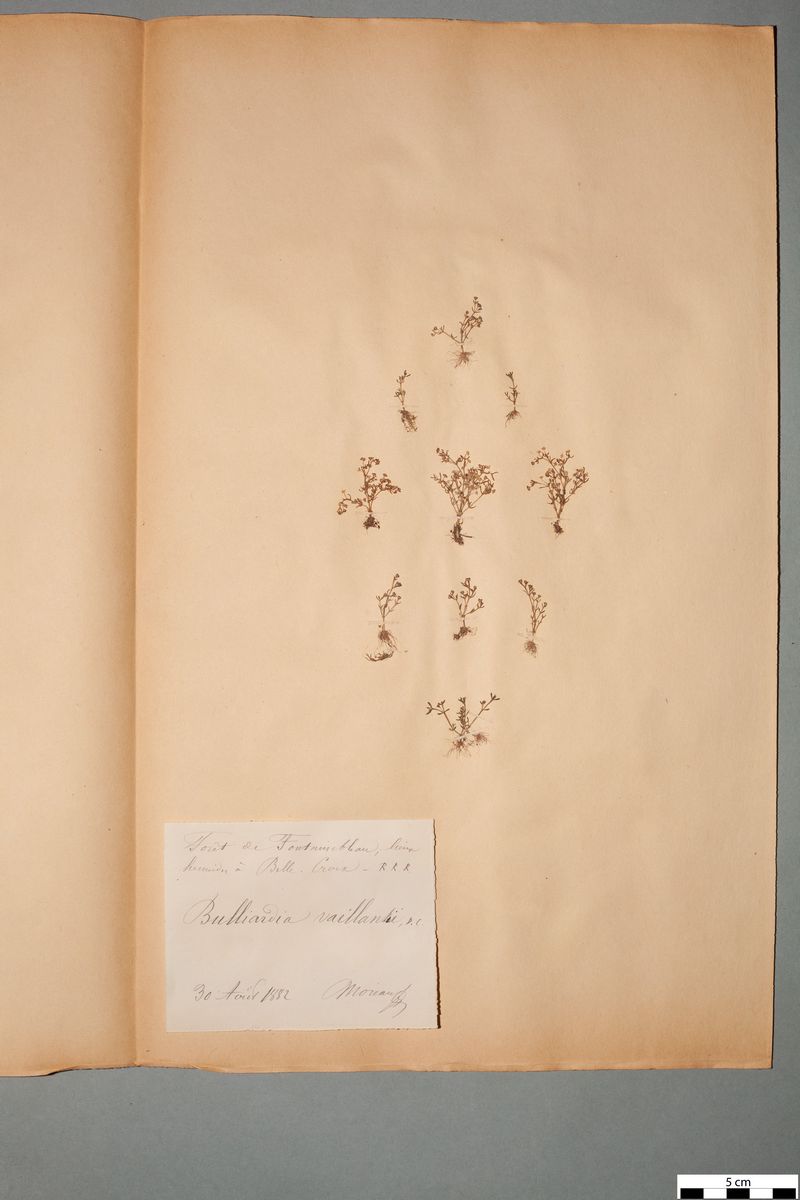 Forêt de Fontainebleau, lieux
humides à Belle-Croix - R R R
Bulliardia vaillantii, D.C.
30 Août 1882
5 cm